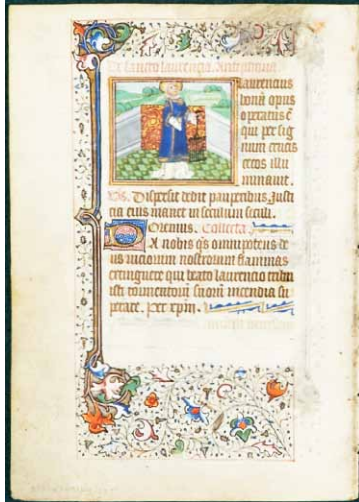 De sancto laurencio. Antiphona
Laurencius
bonū opus
operatus ē
qui per sig
num crucis
cecos illu
minavit.
Vs. Dispersit dedit pauperibus. Justi
cia eius manet in seculum seculi.
Oremus. Collecta.
DA nobis q̄s omnipotens de
us viciorum nostrorum flammas
extinguere qui beato laurencio tribu
isti tormentorū suorū incendia su
perare. per xp̄m.